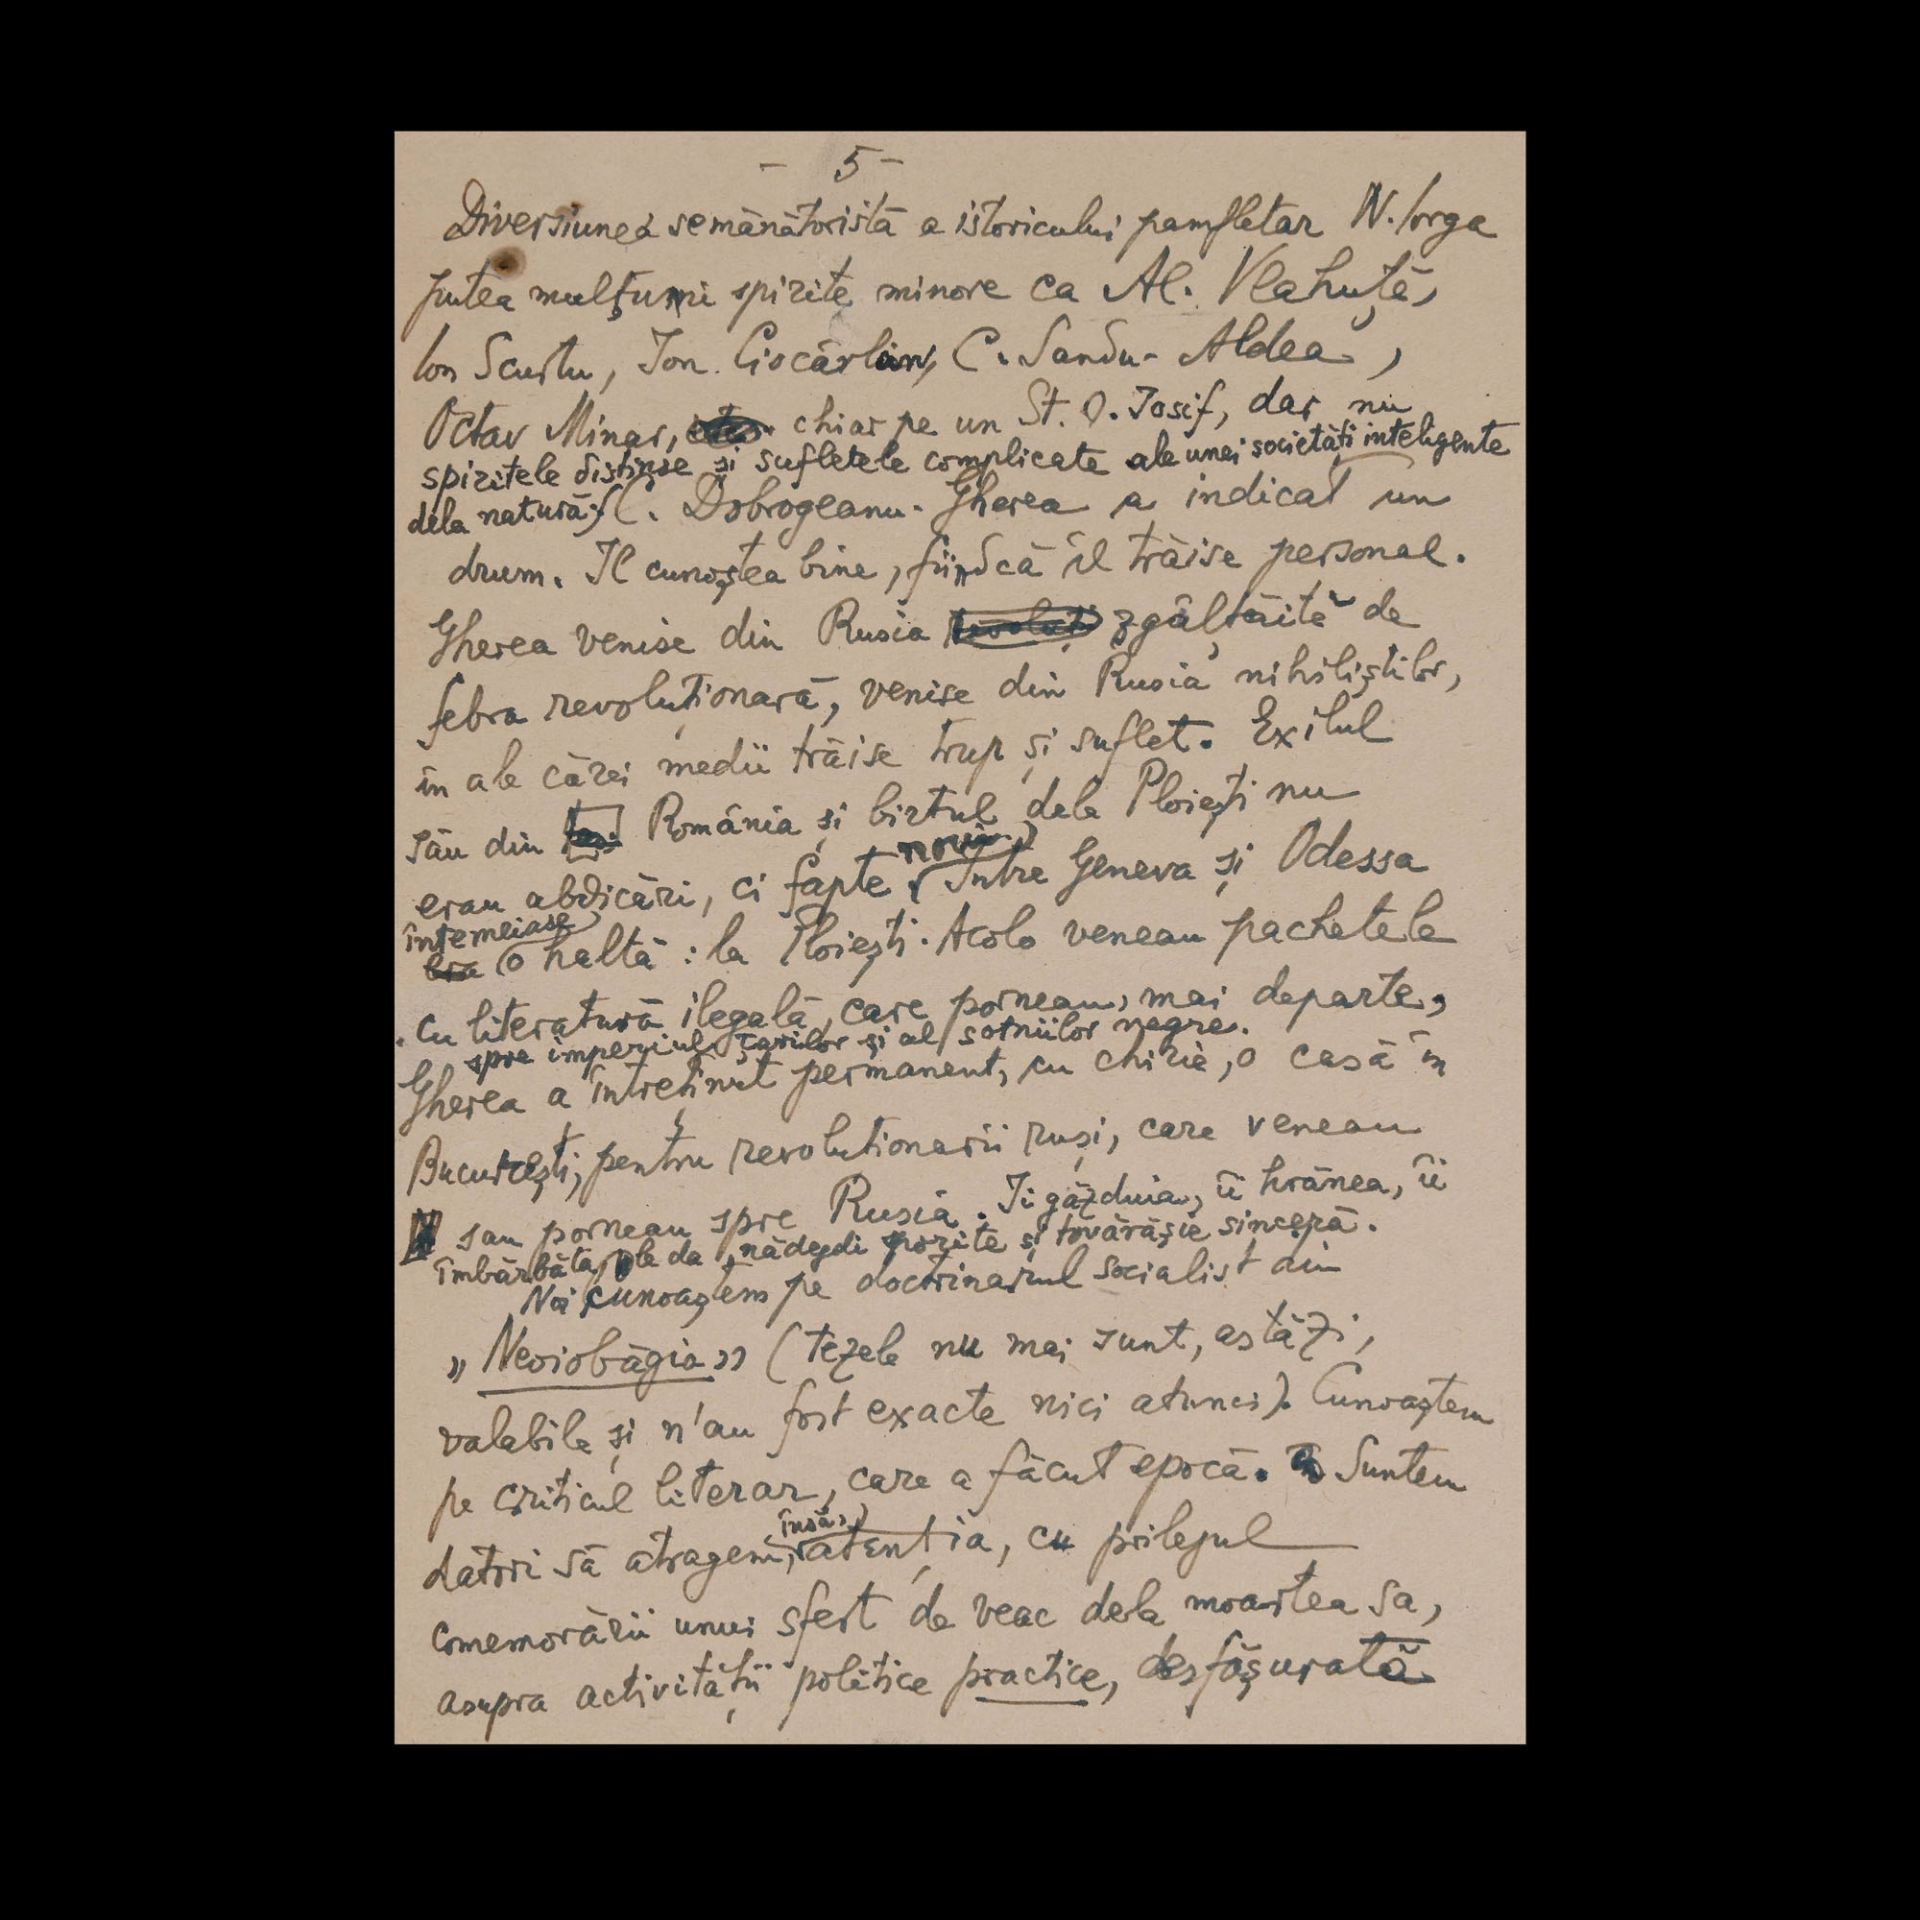 - 5 -
Diversiunea semănătoristă a istoricului pamfletar N. Iorga
putea mulțumi spirite minore ca Al. Vlahuță,
Ion Scurtu, Ion Ciocârlan, C. Sandu-Aldea,
Octav Minar, chiar pe un St. O. Iosif, dar nu
spiritele distinse și sufletele complicate ale unei societăți inteligente
dela natură. C. Dobrogeanu-Gherea a indicat un
drum. Il cunoștea bine, fiindcă îl trăise personal.
Gherea venise din Rusia zgâlțâită de
febra revoluționară, venise din Rusia nihiliștilor,
în ale cărei medii trăise trup și suflet. Exilul
său din România și birtul dela Ploiești nu
erau abdicări, ci fapte noui. Intre Geneva și Odessa
întemeiase
o haltă: la Ploiești. Acolo veneau pachetele
cu literatură ilegală, care porneau, mai departe,
spre imperiul țarilor și al sotniilor negre.
Gherea a întreținut permanent, cu chirie, o casă în
București, pentru revolutionarii ruși, care veneau
sau porneau spre Rusia. Ii găzduia, îi hrănea, îi
îmbărbăta, le da nădejdi sporite și tovărășie sinceră.
Noi cunoaștem pe doctrinarul socialist din
„Neoiobăgia” (tezele nu mai sunt, astăzi,
valabile și n'au fost exacte nici atunci). Cunoaștem
pe criticul literar, care a făcut epocă. Suntem
datori să atragem, însă, atenția, cu prilejul
comemorării unui sfert de veac dela moartea sa,
asupra activității politice practice, desfășurată